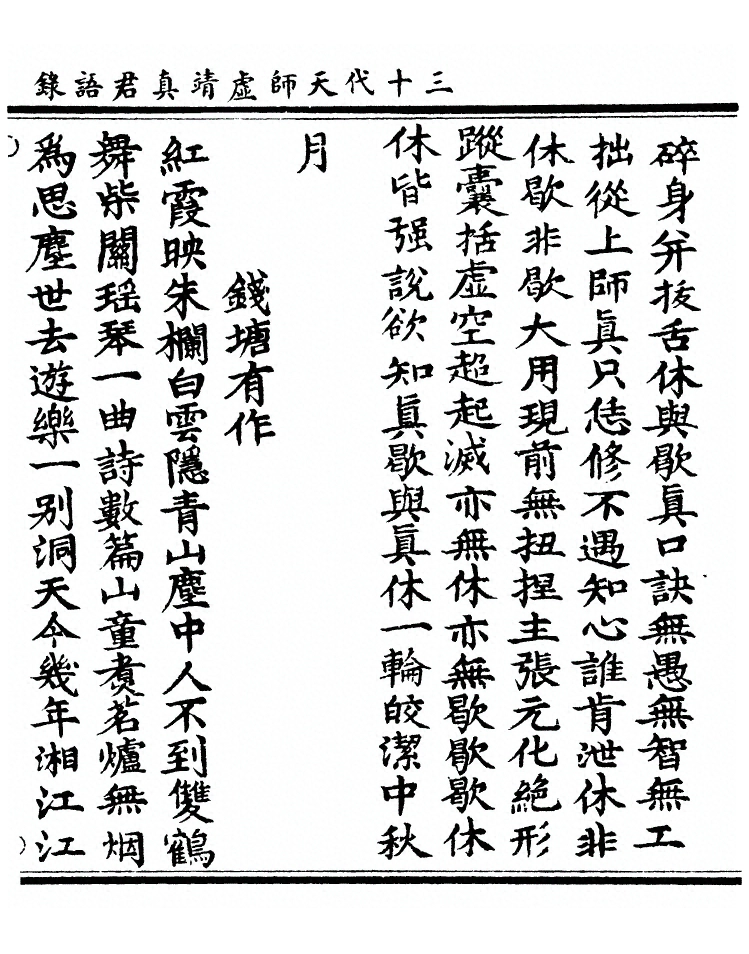 三十代天師虛靖真君語錄
碎身并拔舌休與歇眞口訣無愚無智無工
拙從上師眞只恁修不遇知心誰肯泄休非
休歇非歇大用現前無扭捏主張元化絕形
蹤囊括虛空超起滅亦無休亦無歇歇歇休
休皆强說欲知眞歇與眞休一輪皎潔中秋
月
錢塘有作
紅霞映朱欄白雲隱青山塵中人不到雙鶴
舞柴關瑶琴一曲詩數篇山童煑茗爐無烟
爲思塵世去遊樂一别洞天今幾年湘江江